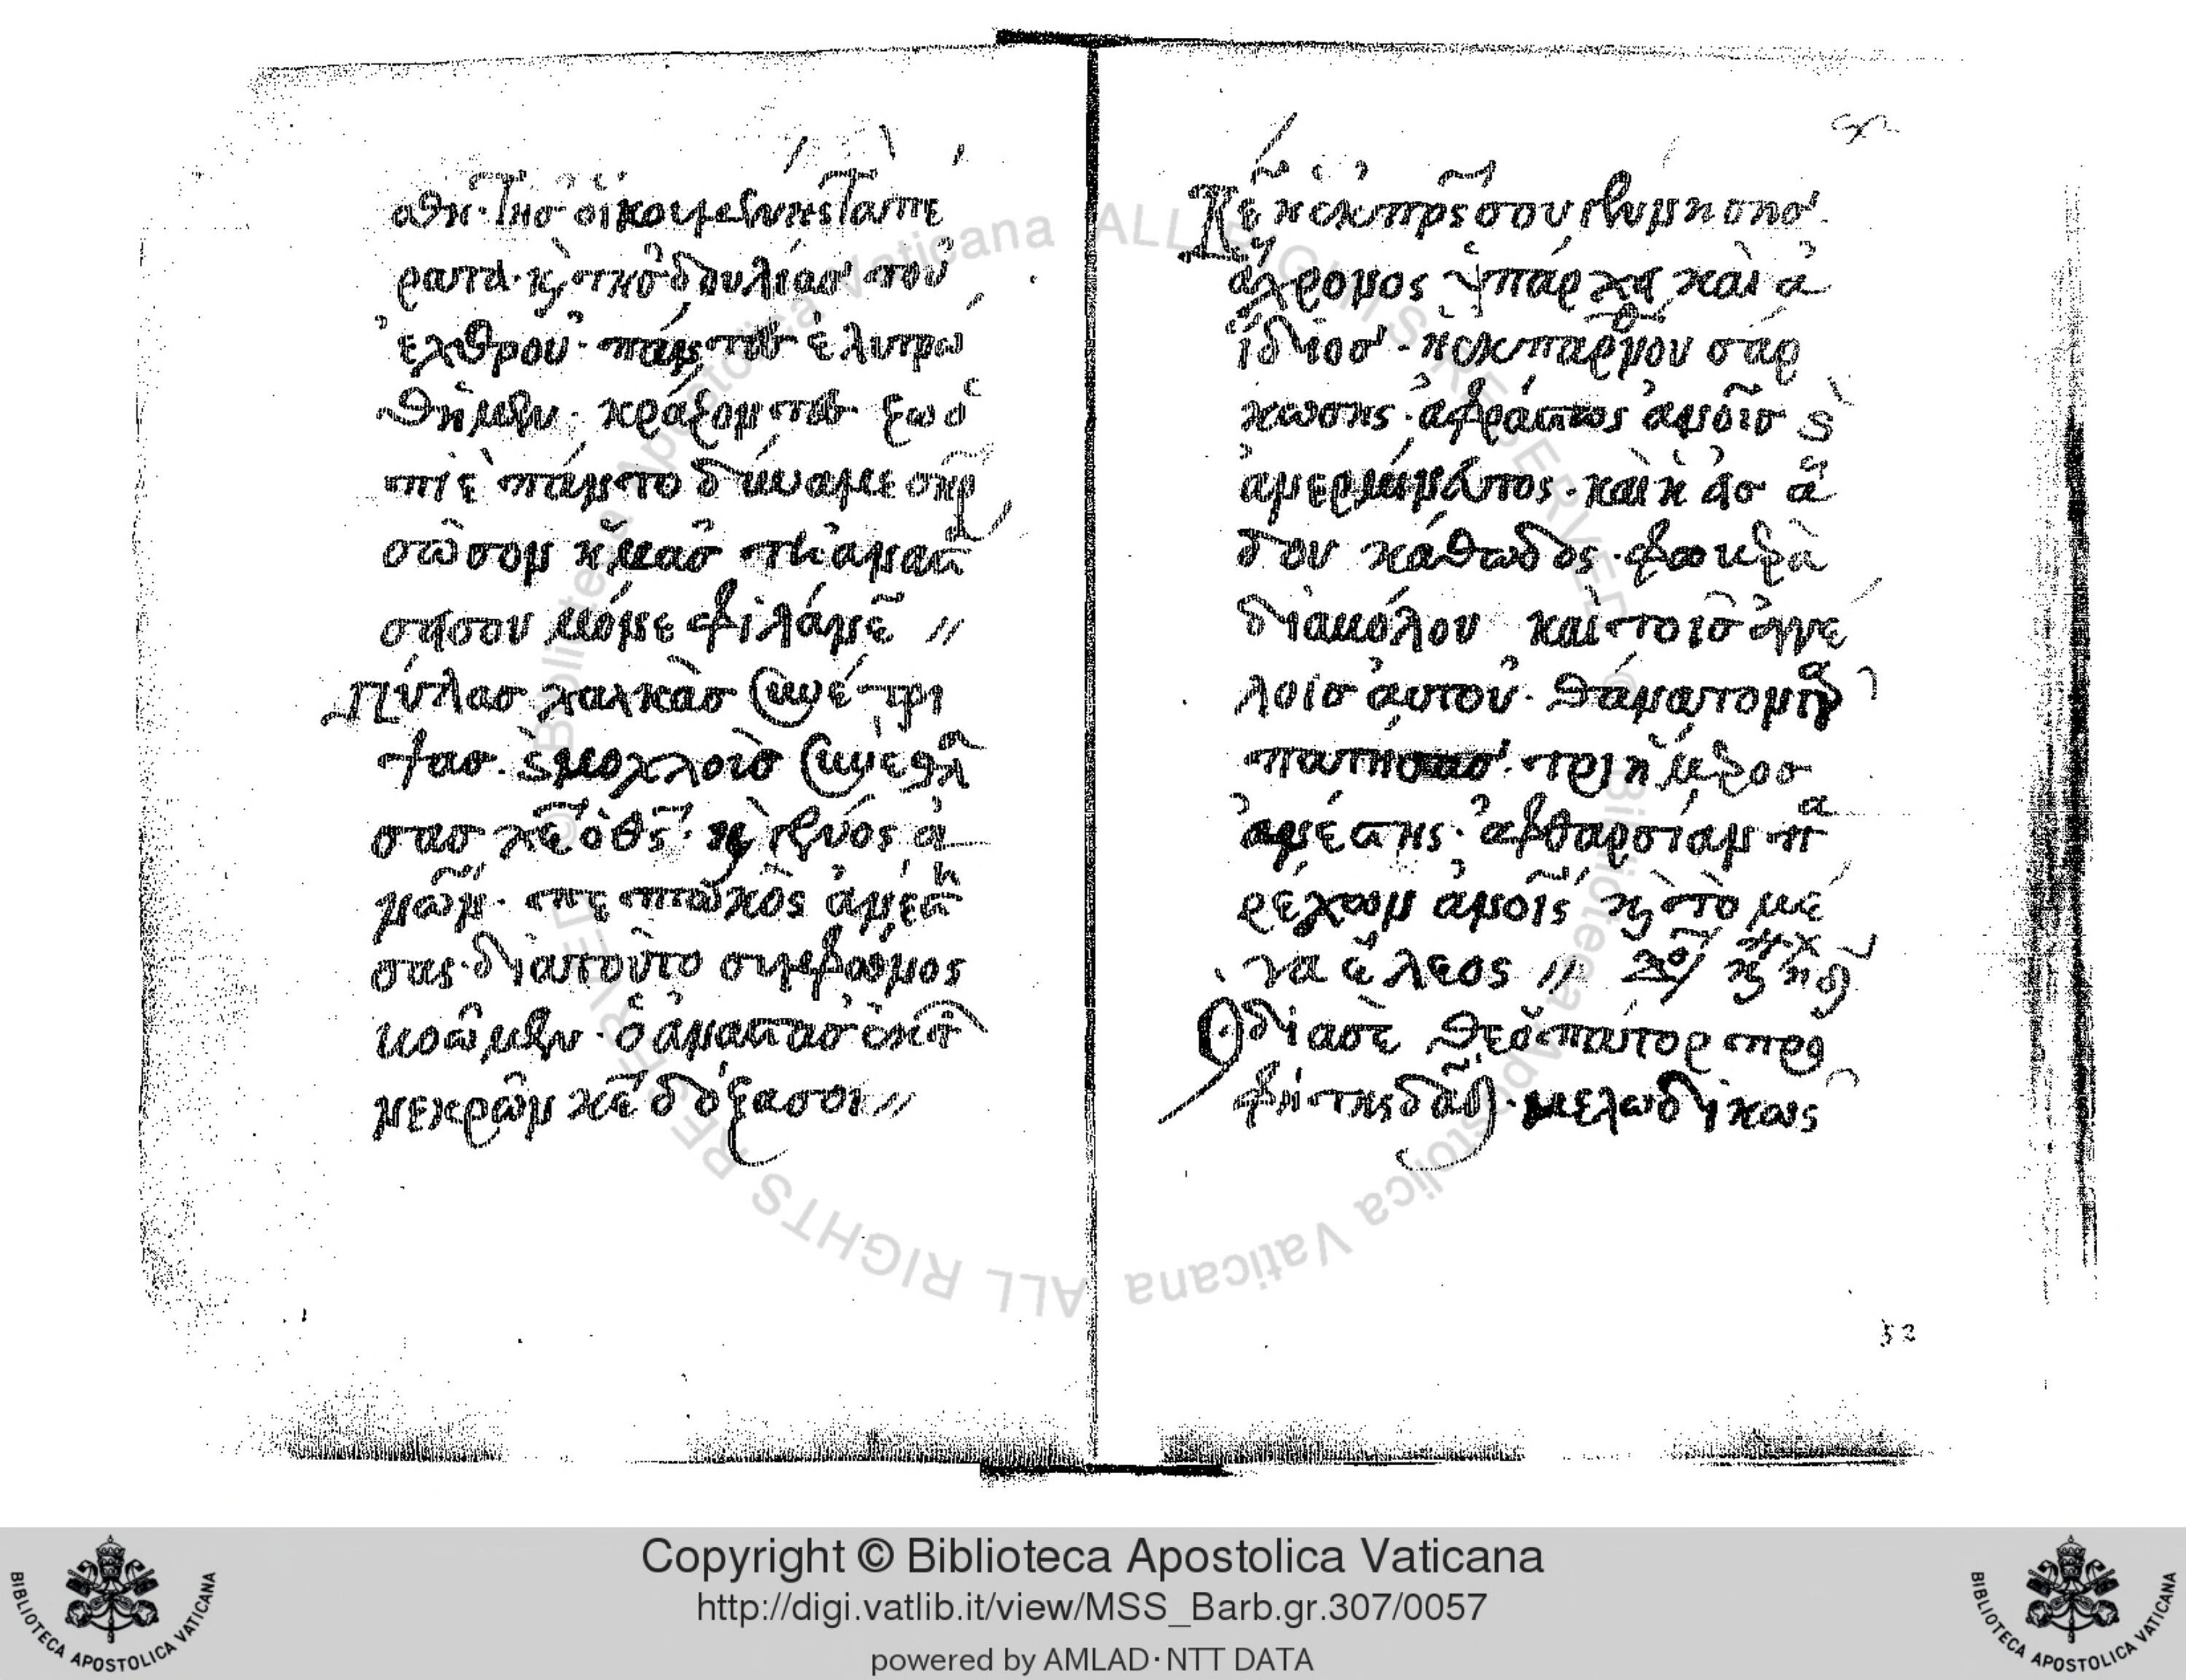 σθη· τῆς οἰκουμένης τὰ πέ
ρατα· κ(αὶ) τῆς δουλίας τοῦ
ἐχθροῦ· πάντες ἐλυτρώ
θημεν· κράζοντες ζωο
ποιὲ παντοδύναμε σ(ωτ)ὴρ
σῶσον ἡμᾶς τῆ ἀναστά
σησου μόνε φιλάν(θρωπ)ε //
Πύλας χαλκὰς συνέτρι
ψας· κ(αὶ) μοχλοὺς συνέθλα
σας χ(ριστ)ὲ ὁ θ(εὸ)ς· κ(αὶ) γένος ἀ(νθρώπων)
πεπτωκὸς ἀνέστη
σας· διατοῦτο συμφώνος
βοῶμεν· ὁ ἀναστὰς ἐκτ(ῶν)
νεκρῶν κ(ύρι)ε δόξασοι //
Κ(ύρι)ε ἡ ἐκ π(ατ)ρ(ό)ς σου γέννησης
ἄχρονος ὑπάρχει καὶ ἀ
ίδιος· ἡ ἐκ παρθ(έ)νου σάρ
κωσης· ἄφραστος ἀν(θρώπ)οις κ(αὶ)
ἀνερμήνευτος· καὶ ἡ εἰς ἅ
δου κάθωδος· φοβερὰ
διαβόλου καὶ τοῖς ἀγγέ
λοις αὐτοῦ· θάνατον γ(ὰρ)
πατήσας· τριήμερος
ἀνέστης· ἀφθαρσίαν πα
ρέχων ἀν(θρώπ)οις κ(αὶ) τὸ μέ
γα ἔλεος //
Ὁ διασὲ θεοπάτορ προ
φήτης δα(υὶ)δ· μελωδικῶς
52
Copyright © Biblioteca Apostolica Vaticana
http://digi.vatlib.it/view/MSS_Barb.gr.307/0057
powered by AMLAD·NTT DATA
BIBLIOTECA APOSTOLICA VATICANA
BIBLIOTECA APOSTOLICA VATICANA